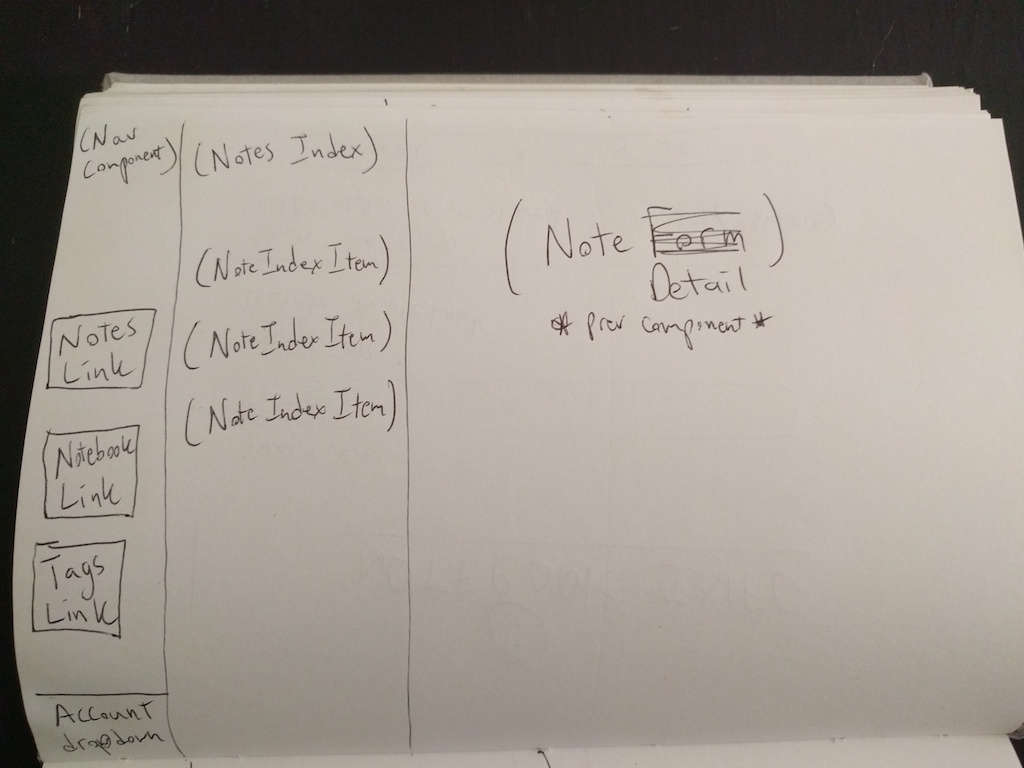 (Nav
Component)
Notes
Link
Notebook
Link
Tags
Link
Account
dropdown
(Notes Index)
(Note Index Item)
(Note Index Item)
(Note Index Item)
(Note Form)
Detail
* prev component *